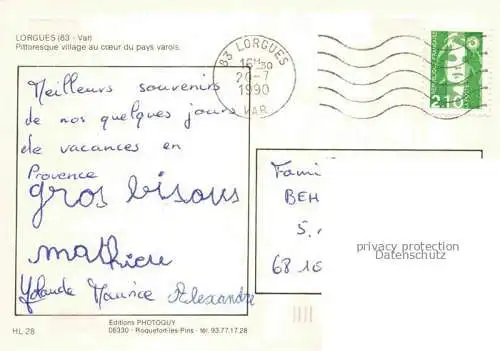 LORGUES (83 - Var)
Pittoresque village au cœur du pays varois.
83 LORGUES
16H30
20-7
1990
VAR
2,10
Meilleurs souvenirs
de nos quelques jours
de vacances en
Provence
gros bisous
mathieu
Yolande Maurice Alexandre
Fami
BEH
5,
68 10
privacy protection
Datenschutz
Editions PHOTOGUY
06330 - Roquefort-les-Pins - tél. 93.77.17.28
HL-28